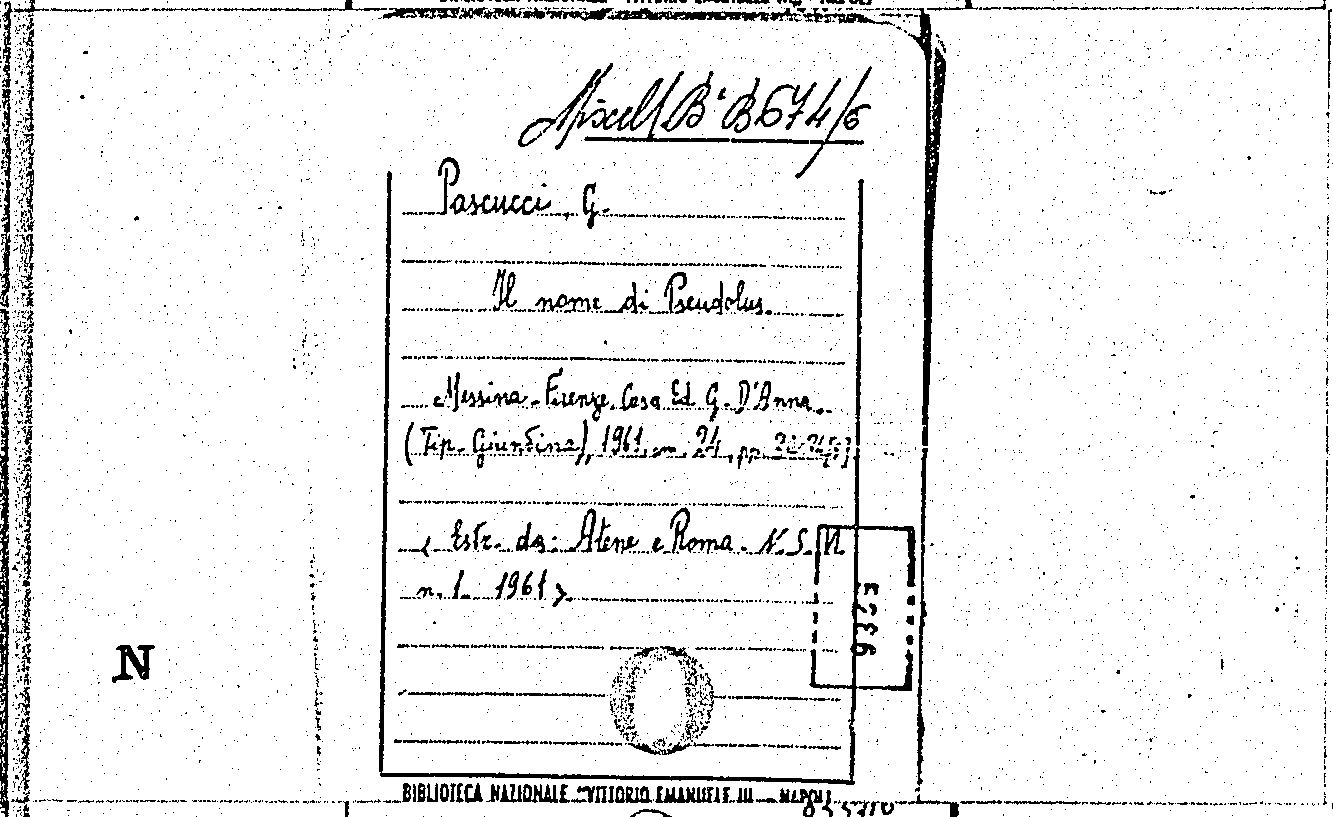 Miscell. B' B 674/6
Pascucci, G.
Il nome di Pseudolus.
Messina-Firenze, Casa Ed. G. D'Anna.
(Tip. Giuntina), 1961, cm. 24, pp.
< Estr. da: Atene e Roma. N.S.
n. 1. 1961 >
N
BIBLIOTECA NAZIONALE "VITTORIO EMANUELE III - NAPOLI